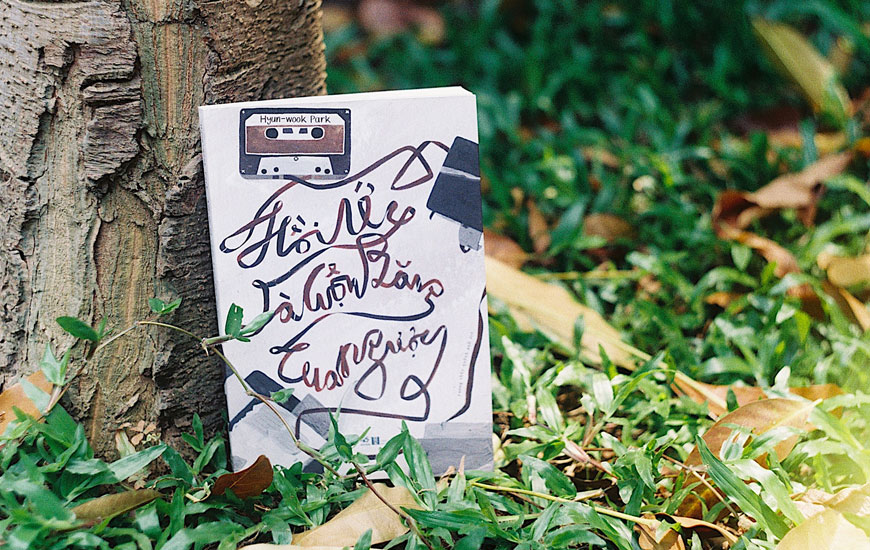 Hyun-wook Park
Hồi Ức
Là Cuộn Băng
Tua Ngược